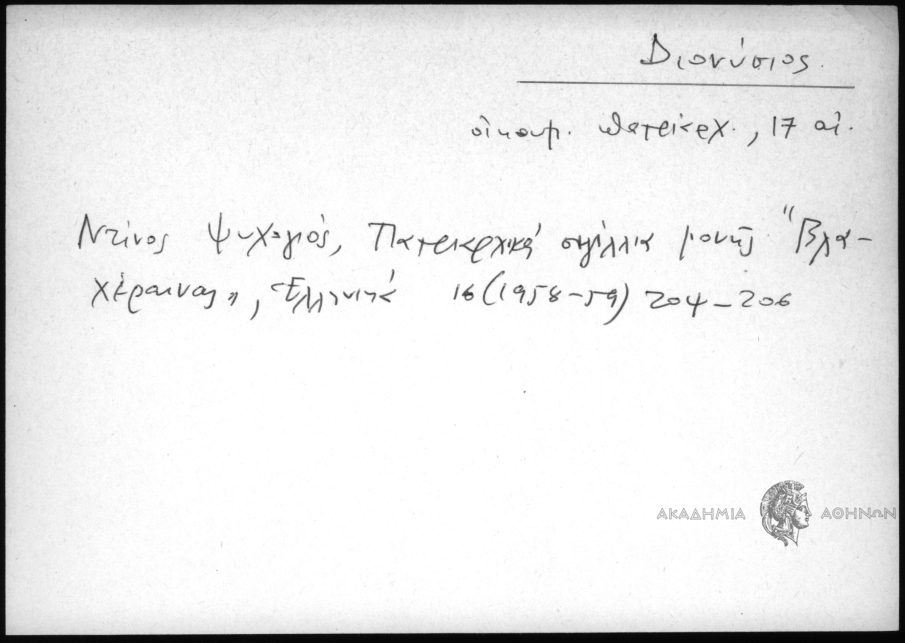 Διονύσιος.
οἰκουμ. πατριάρχ., 17 αἰ.
Ντίνος Ψυχογιός, Πατριαρχικά σιγίλλια μονῆς "Βλα-
χέραινας", Ἑλληνικά 16 (1958-59) 204-206
ΑΚΑΔΗΜΙΑ ΑΘΗΝΩΝ